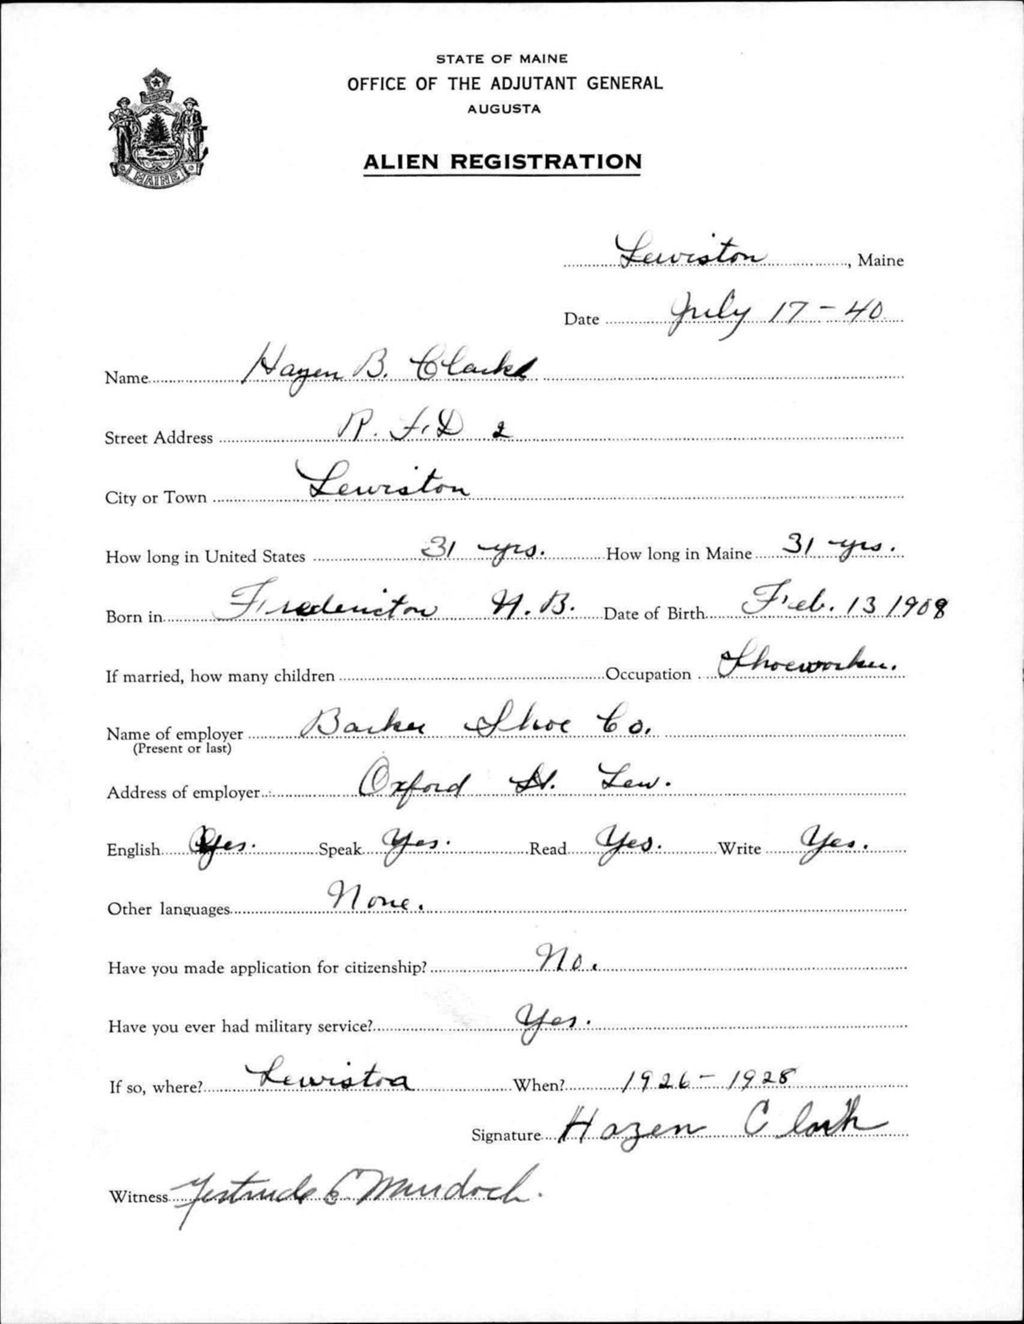 STATE OF MAINE
OFFICE OF THE ADJUTANT GENERAL
AUGUSTA
ALIEN REGISTRATION
MAINE
Lewiston, Maine
Date July 17-40
Name Hazen B. Clark
Street Address R.F.D 2
City or Town Lewiston
How long in United States 31 yrs. How long in Maine 31 yrs.
Born in Fredericton N.B. Date of Birth Feb. 13 1908
If married, how many children Occupation Shoeworker.
Name of employer Barker Shoe Co.
(Present or last)
Address of employer Oxford St. Lew.
English Yes. Speak Yes. Read Yes. Write Yes.
Other languages None.
Have you made application for citizenship? No.
Have you ever had military service? Yes.
If so, where? Lewiston When? 1926-1928
Signature Hazen Clark
Witness Gertrude E Murdoch.